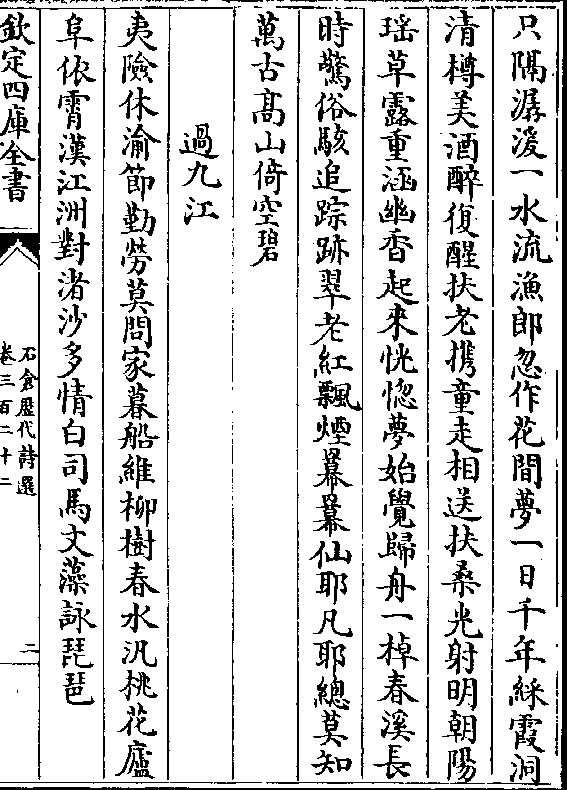 只隔潺湲一水流漁郎忽作花間夢一日千年綵霞洞
清樽美酒醉復醒扶老携童走相送扶桑光射明朝陽
瑶草露重涵幽香起來恍惚夢始覺歸舟一棹春溪長
時驚俗駭追踪跡翠老紅飄煙冪冪仙耶凡耶總莫知
萬古高山倚空碧
過九江
夷險休渝節勤勞莫問家暮船維柳樹春水汎桃花廬
阜依霄漢江洲對渚沙多情白司馬文藻詠琵琶
欽定四庫全書
石倉歴代詩選
卷三百二十二
二